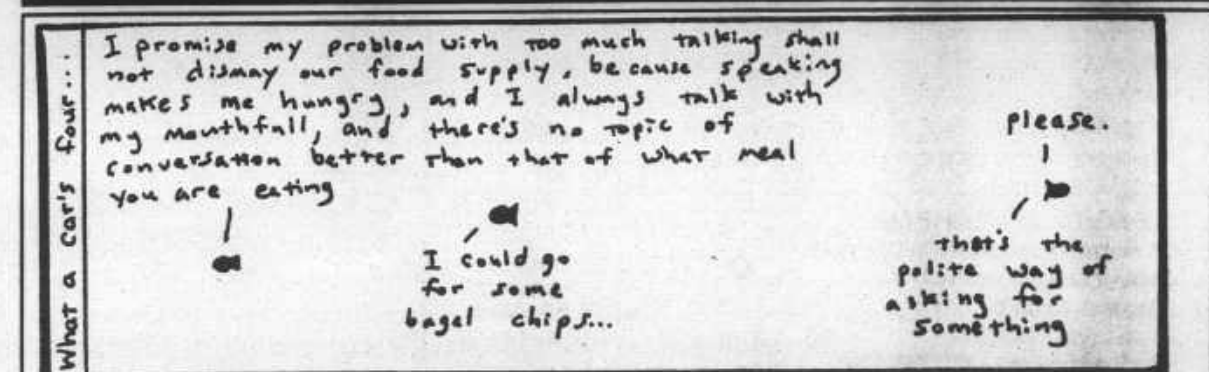 What a car's four...
I promise my problem with too much talking shall
not dismay our food supply, because speaking
makes me hungry, and I always talk with
my mouthfull, and there's no topic of
conversation better than that of what meal
you are eating
I could go
for some
bagel chips...
please.
that's the
polite way of
asking for
something